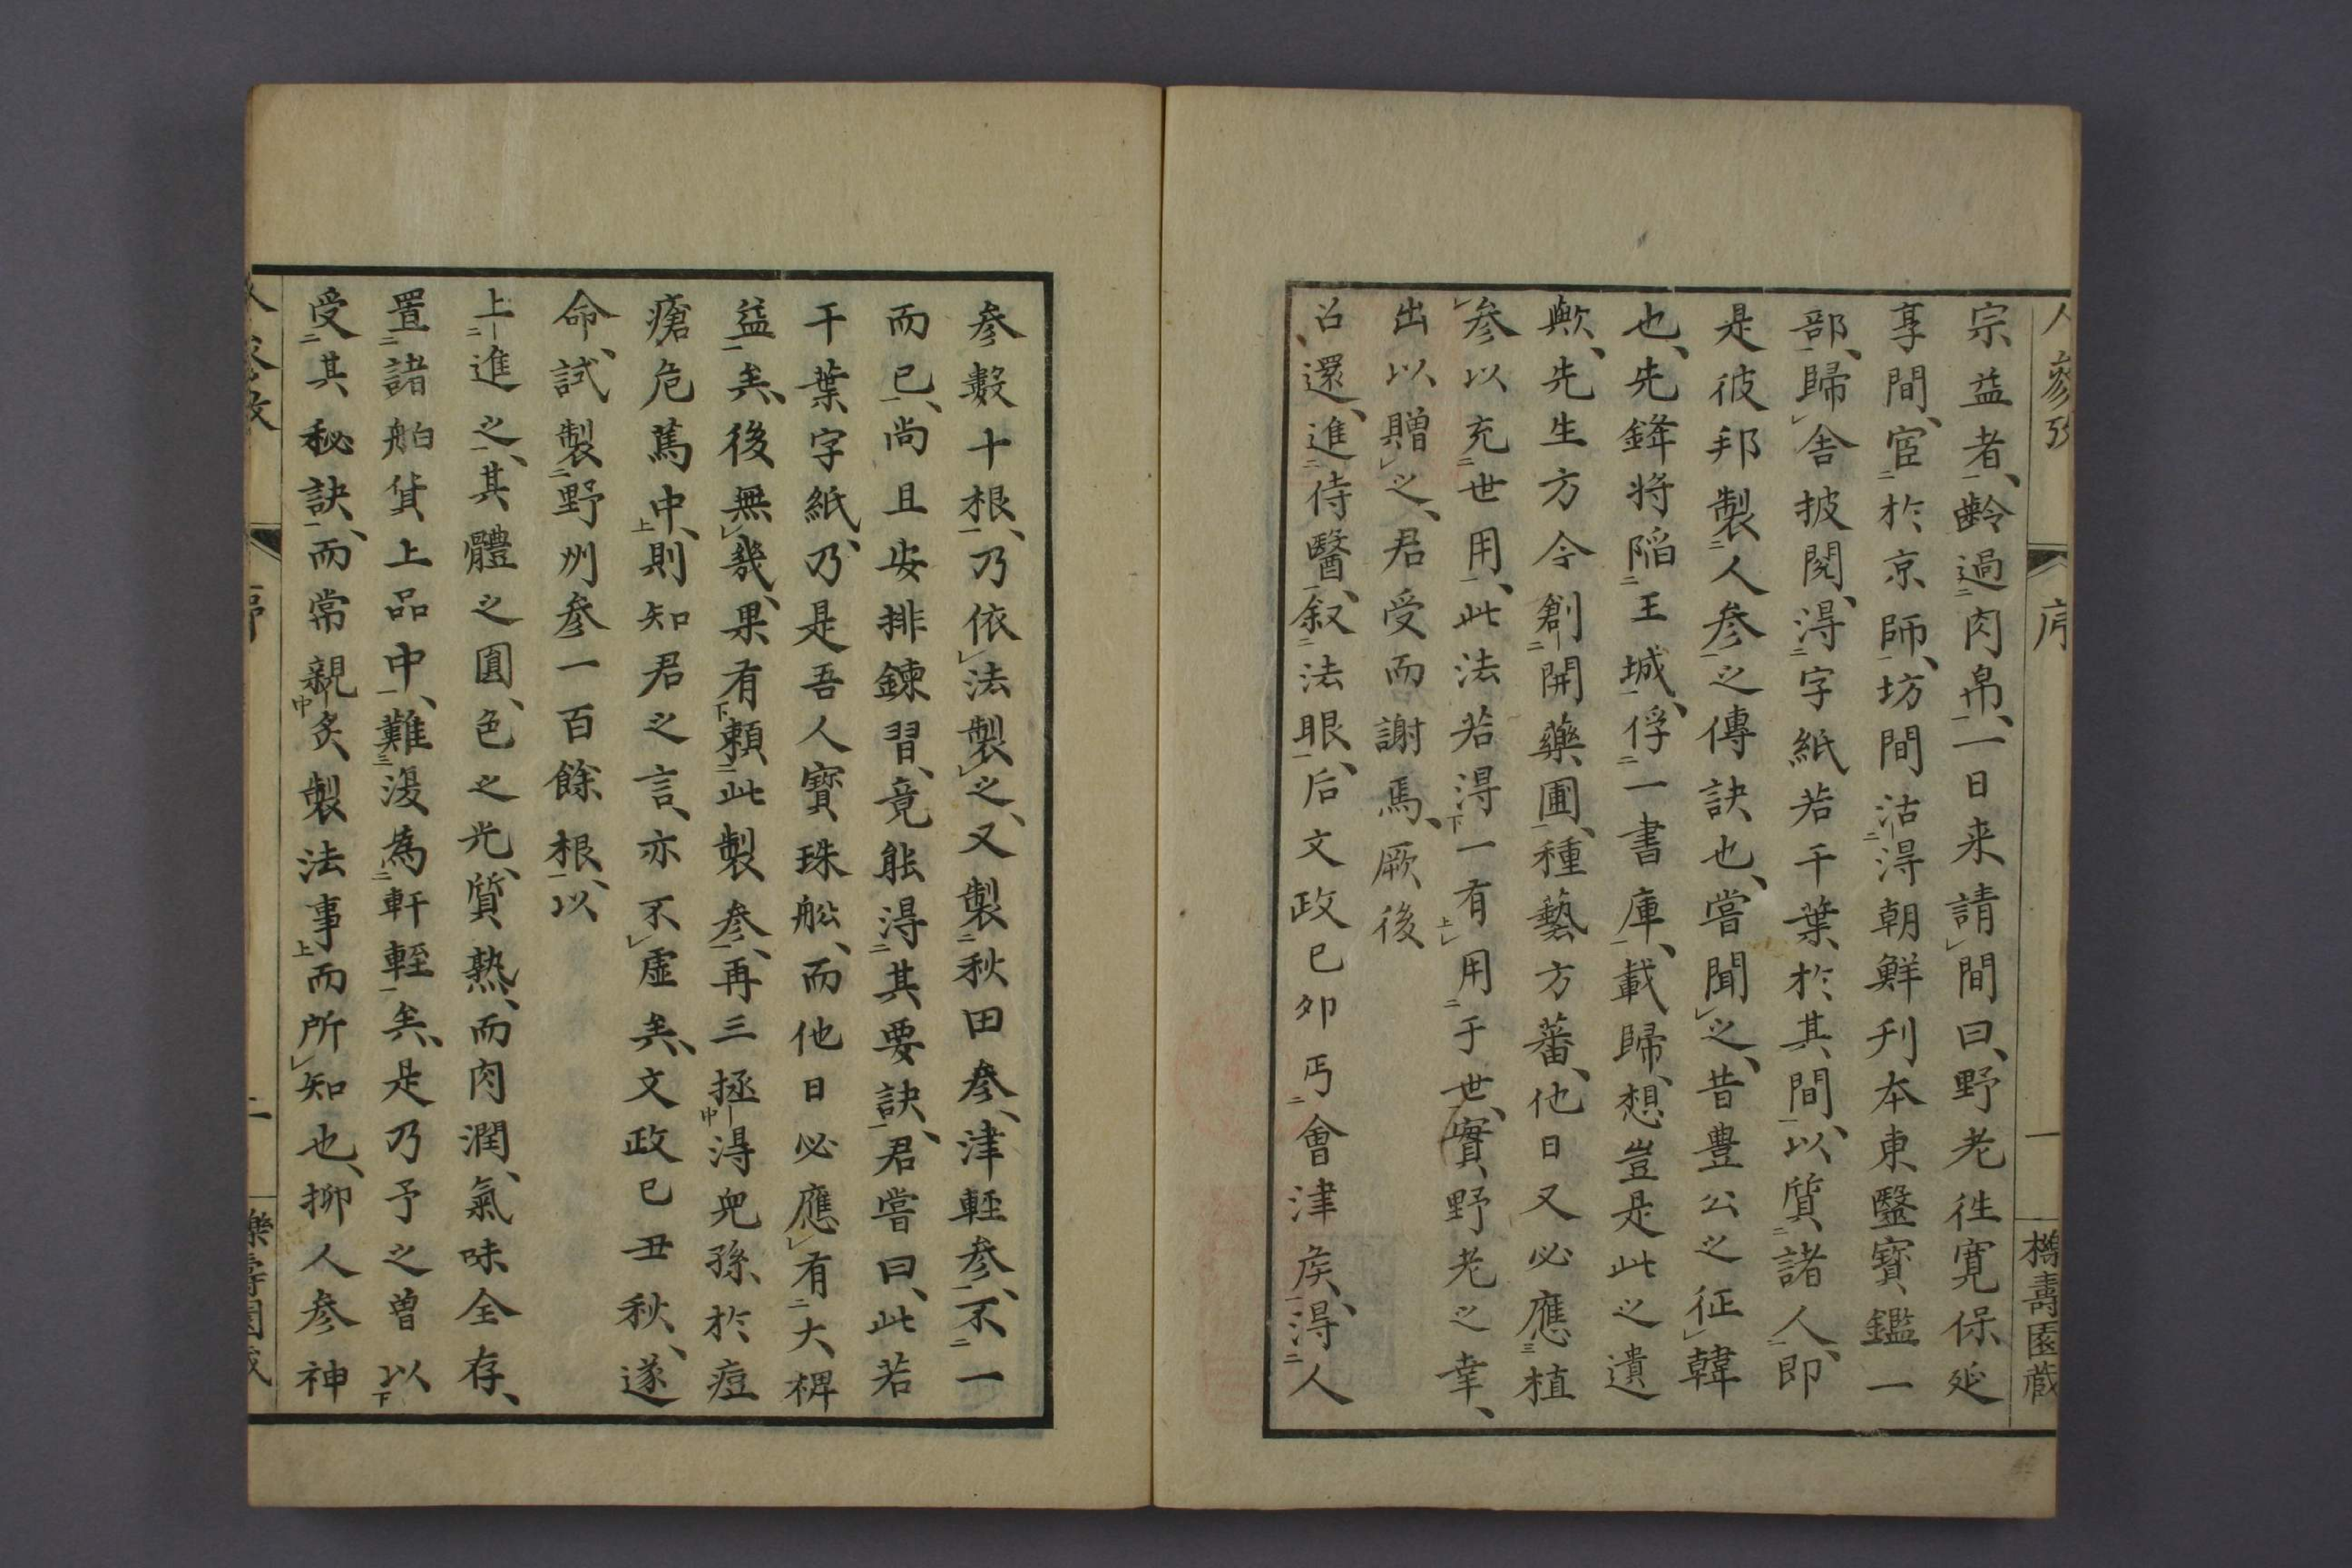 宗益者、齡過肉帛、一日来請間曰、野老徃寛保延
享間、宦於京師、坊間沽淂朝鮮刋本東醫寳鑑一
部、歸舎披閲、淂字紙若干葉於其間、以質諸人、即
是彼邦製人参之傳訣也、嘗聞之、昔豊公之征韓
也、先鋒将陥王城、俘一書庫、載歸、想豈是此之遺
歟、先生方今創開藥圃、種藝方蕃、他日又必應植
参以充世用、此法若淂一有用于世、實野老之幸、
出以贈之、君受而謝焉、厥後
召還、進侍醫、叙法眼、后文政己夘丐會津矦、淂人
参數十根、乃依法製之、又製秋田参、津輕参、不一
而已、尚且安排錬習、竟能淂其要訣、君嘗曰、此若
干葉字紙、乃是吾人寳珠舩、而他日必應有大裨
益矣、後無幾、果有頼此製参、再三拯淂兒孫於痘
瘡危篤中、則知君之言、亦不虚矣、文政己丑秋、遂
命、試製野州参一百餘根、以
上進之、其體之圓、色之光、質熟、而肉潤、氣味全存、
置諸舶貨上品中、難復為軒輊矣、是乃予之曽以
受其秘訣、而常親炙、製法事而所知也、抑人参神
人參攷
序
一
檪壽園蔵
序
二